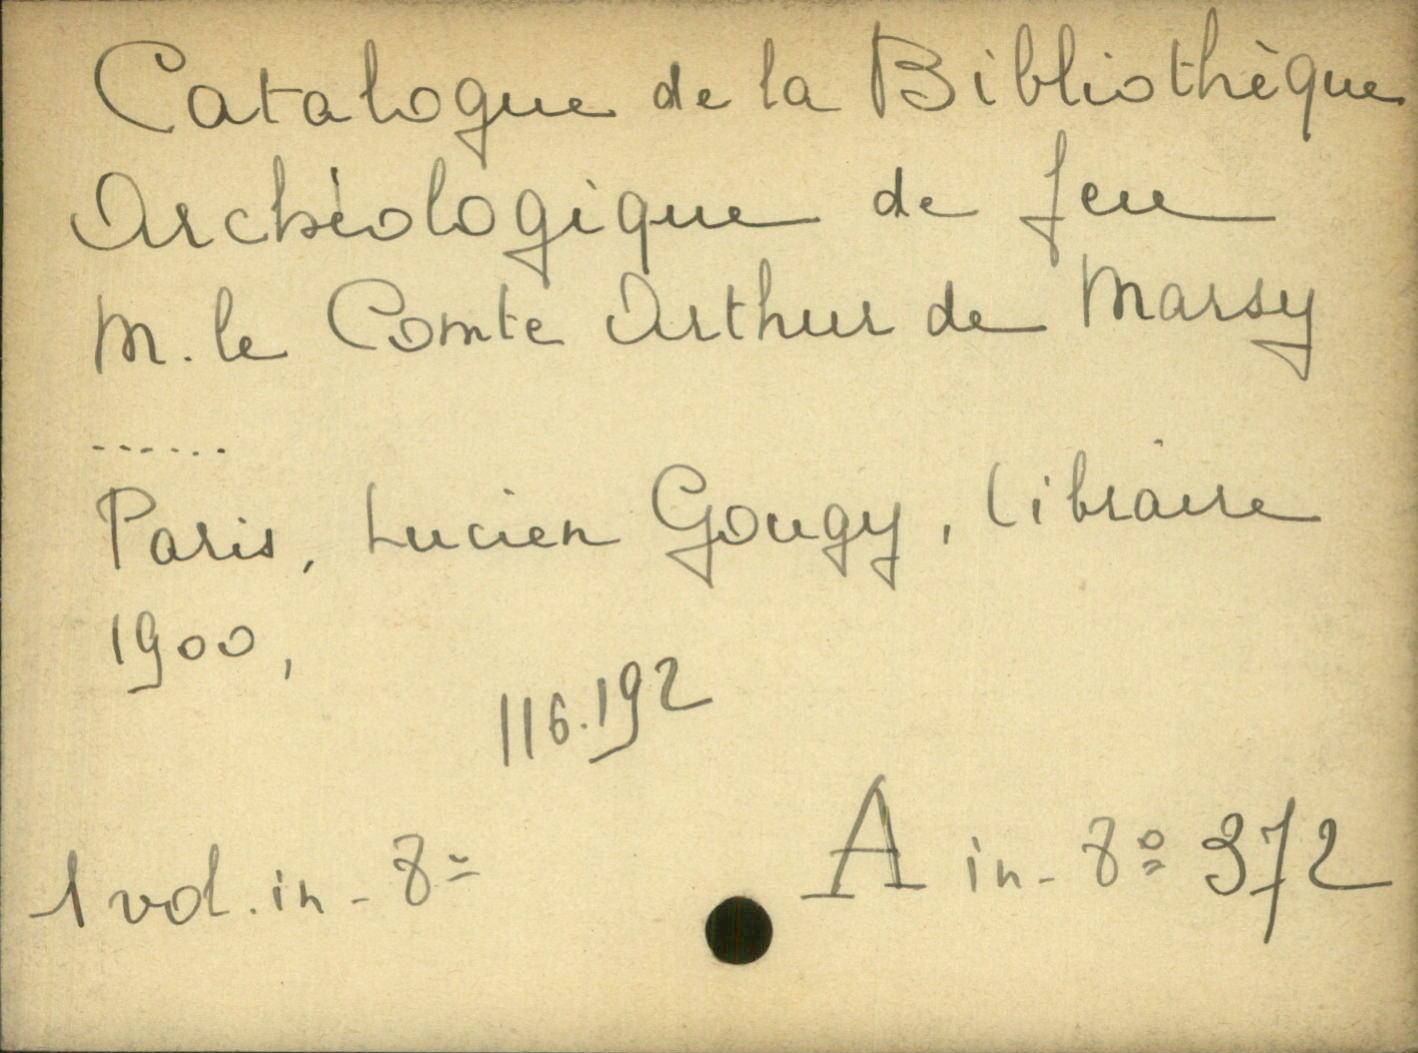 Catalogue de la Bibliothèque
Archéologique de feu
M. le Comte Arthur de Marsy
......
Paris, Lucien Gougy, libraire
1900,
116.192
1 vol. in-8º A in-8º 372